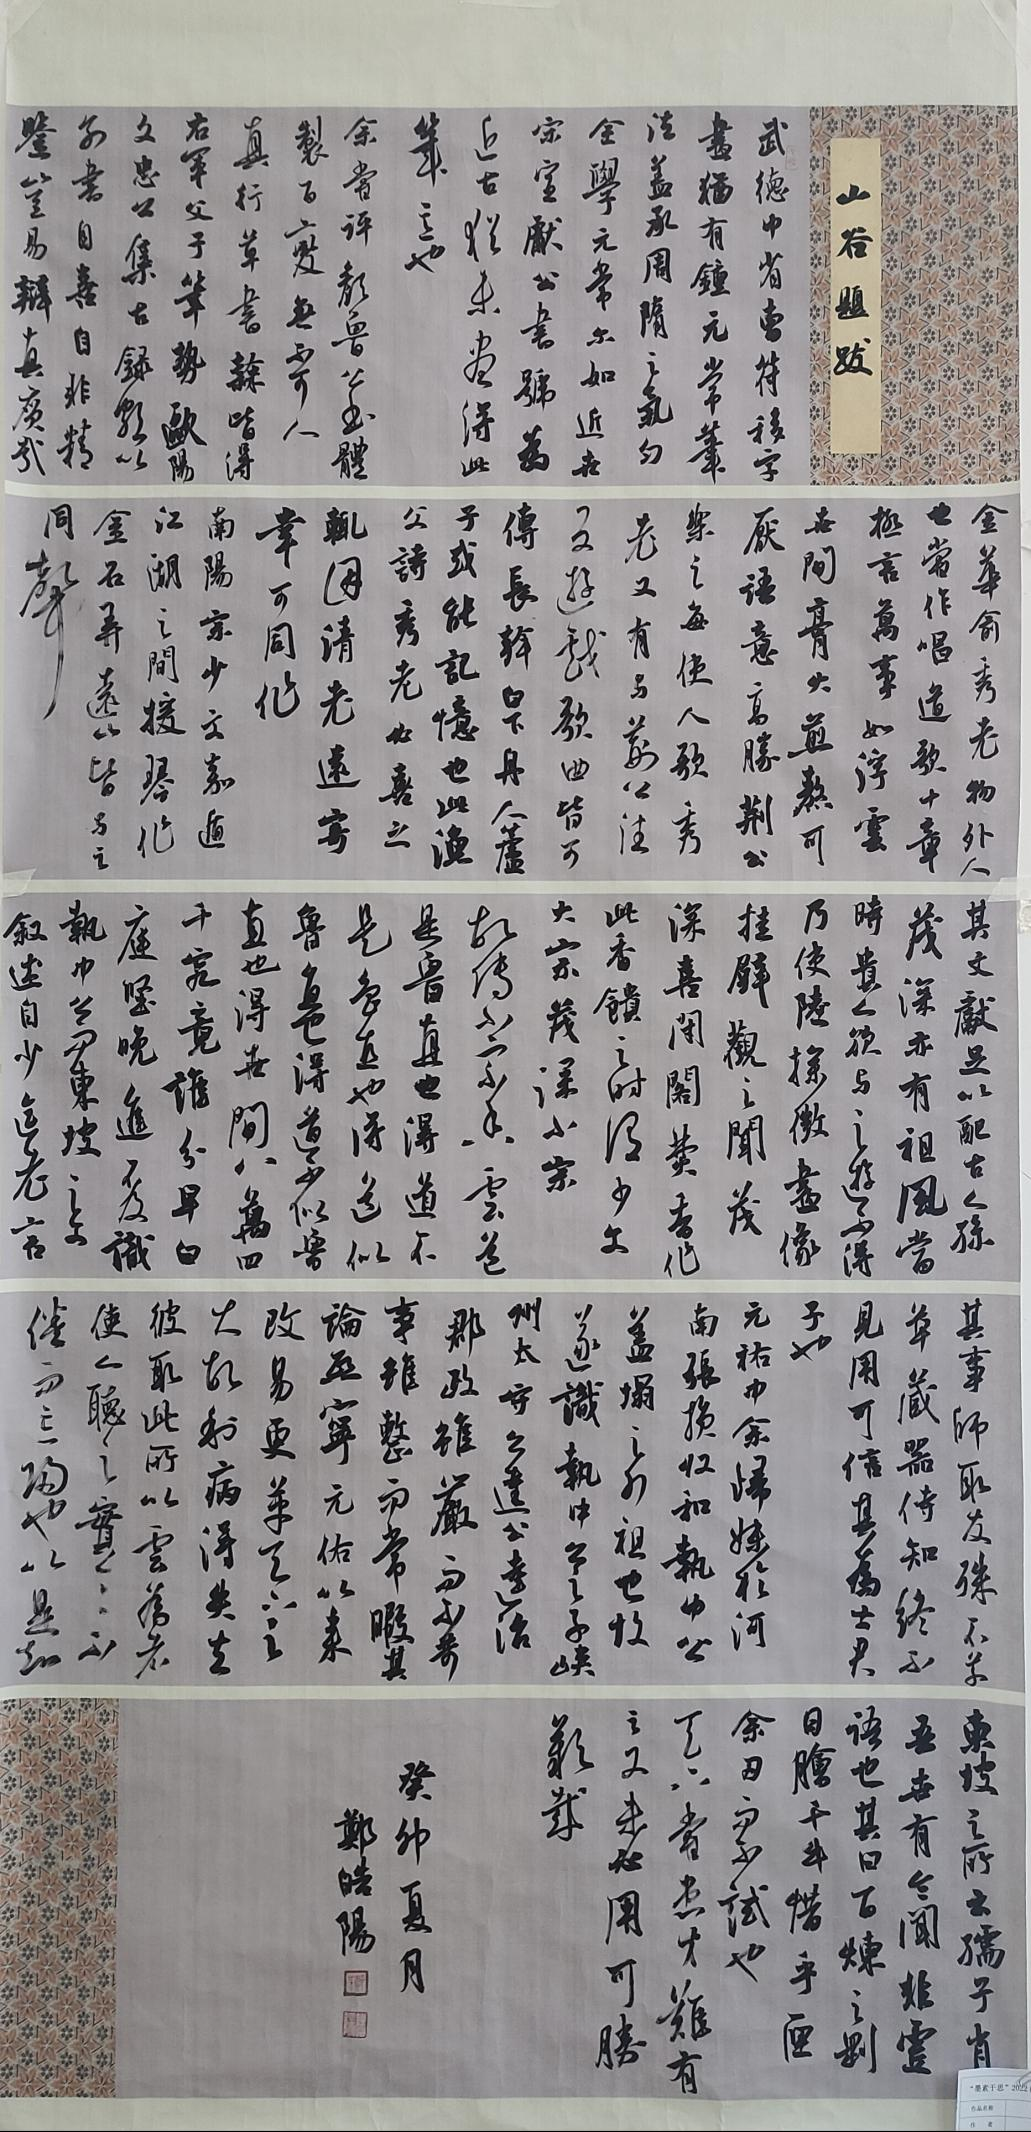 山谷題跋
武德中省曹符移字
畫猶有鐘元常筆
法蓋承周隋之氣勻
全學元常尔如近世
宋宣獻公書號為
近古猶未盡得此
筆意也
余嘗評顏魯公書體
製百變無不可人
真行草書隸皆得
右軍父子筆勢歐陽
文忠公集古錄顏公
分書自喜自非精
鑒豈易辯真贗哉
金華俞秀老物外人
也嘗作唱道歌十章
極言萬事如浮雲
世間膏火煎熬可
厭語意高勝荊公
樂之每使人歌秀
老又有與荊公往
反遊戲歌曲皆可
傳長幹白下舟人蘆
子或能記憶也此漁
父詩秀老必喜之
輒因清老遠寄
幸可同作
南陽宗少文嘉遁
江湖之間援琴作
金石弄遠山皆與之
同聲
其文獻足以配古人孫
茂深亦有祖風當
時貴人欲與之遊不得
乃使陸探微畫像
挂壁觀之聞茂
深喜閉閣焚香作
此香饋之時謂少文
大宗茂深小宗
故傳小宗香云爾
是魯直也得道不
是魯直也得道似
魯直也得道不似魯
直也得世間八萬四
千究竟誰分早白
庭堅晚進不及識
執中公而東坡之文
敘述自少迄老言
其事師取友殊不草
草藏器待知終不
見用可信其為士君
子也
元祐中余歸妹於河
南張損收和執中公
蓋塤之外祖也故
遂識執中公之子峽
州太守公達公達治
郡政雖嚴而不苛
事雖整而常暇其
論熙寧元佑以來
改易更革天下之
大故利病得失去
彼取此所以云為者
使人聽之亹亹不
倦而忘歸也以是知
東坡之所云孺子肖
吾世有令聞非虛
語也其曰百煉之剛
日膾千牛惜乎匣
余刃而不試也
天下嘗患才難有
之又未必用可勝
歎哉
癸卯夏月
鄭皓陽
“墨素于思”2022
作品名称
作 者